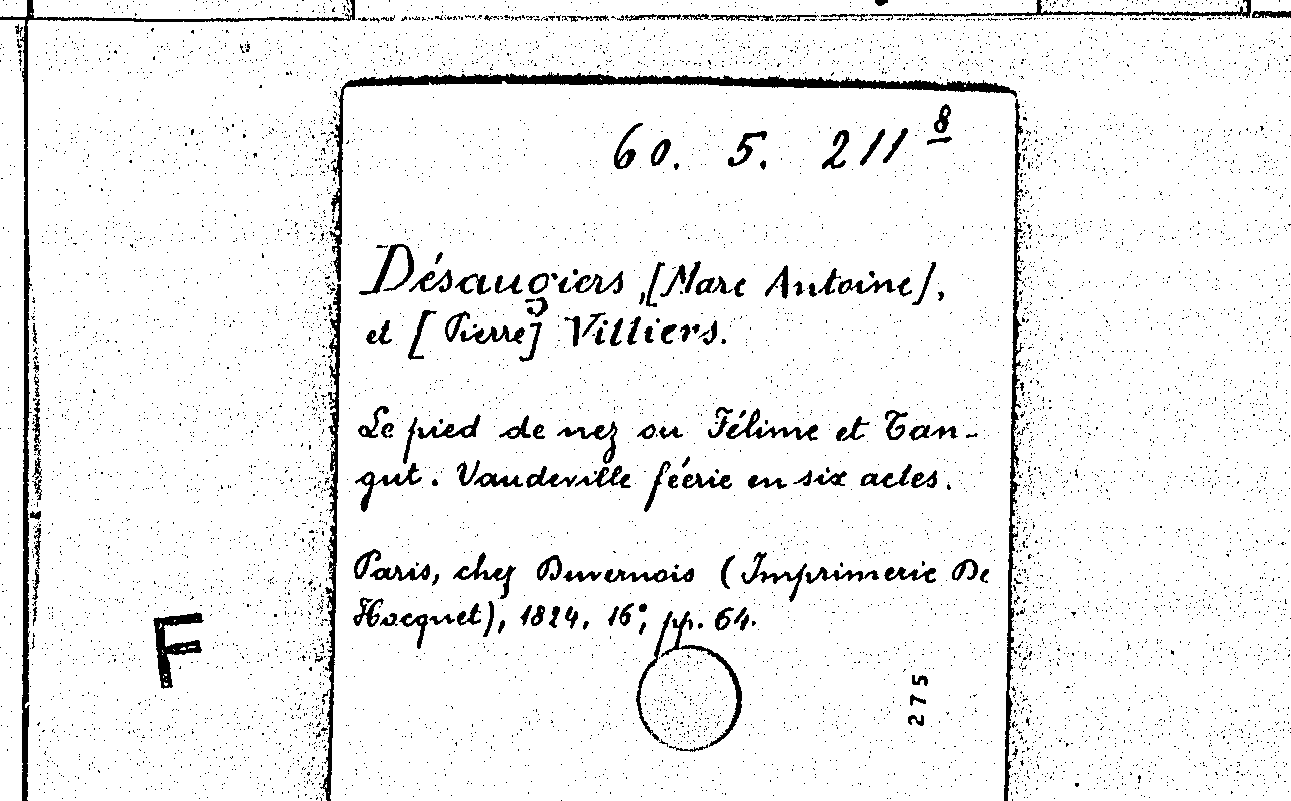 60. 5. 211 8
Désaugiers, [Marc Antoine],
et [Pierre] Villiers.
Le pied de nez ou Félime et Tan-
gut. Vaudeville féerie en six actes.
Paris, chez Duvernois (Imprimerie De
Hocquet), 1824, 16°, pp. 64.
F
275